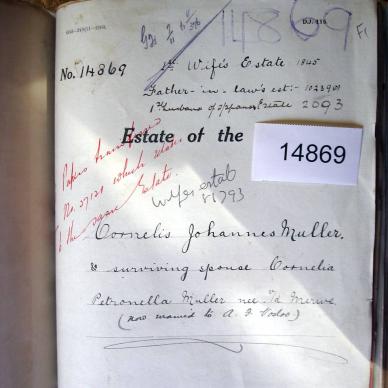 14869
D.J. 118
No. 14869
1st Wife's Estate 1845
Father-in-law's est:- 1023901
1st husband of Spouse's Estate 2093
Estate of the
14869
Papers transferred
No. 27121 which was
the same Estate.
wifes estate
81793
Cornelis Johannes Muller,
& surviving spouse Cornelia
Petronella Muller nee Vd Merwe
(now married to A. J. Vosloo)